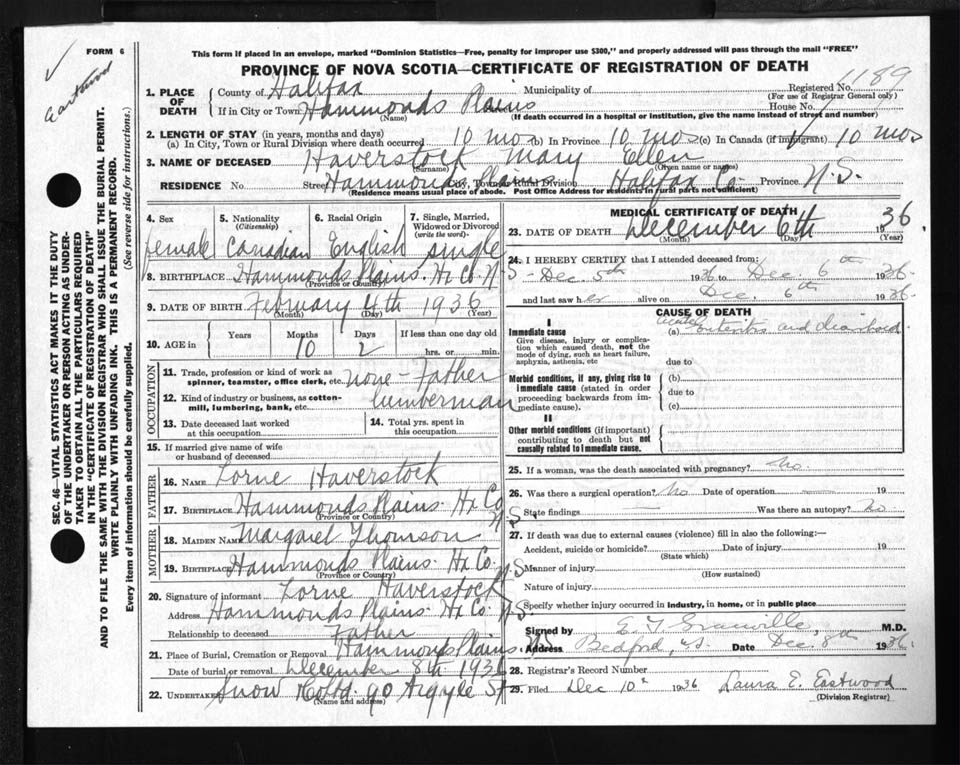 FORM 6
Eastwood
This form if placed in an envelope, marked "Dominion Statistics—Free, penalty for improper use $300," and properly addressed will pass through the mail "FREE"
PROVINCE OF NOVA SCOTIA—CERTIFICATE OF REGISTRATION OF DEATH
SEC. 46—VITAL STATISTICS ACT MAKES IT THE DUTY
OF THE UNDERTAKER OR PERSON ACTING AS UNDER-
TAKER TO OBTAIN ALL THE PARTICULARS REQUIRED
IN THE "CERTIFICATE OF REGISTRATION OF DEATH"
AND TO FILE THE SAME WITH THE DIVISION REGISTRAR WHO SHALL ISSUE THE BURIAL PERMIT.
WRITE PLAINLY WITH UNFADING INK. THIS IS A PERMANENT RECORD.
Every item of information should be carefully supplied. (See reverse side for instructions.)
1. PLACE OF DEATH County of Halifax Municipality of Registered No. 1189
(For use of Registrar General only)
If in City or Town Hammonds Plains House No.
(Name) (If death occurred in a hospital or institution, give the name instead of street and number)
2. LENGTH OF STAY (in years, months and days)
(a) In City, Town or Rural Division where death occurred 10 mos (b) In Province 10 mos (c) In Canada (if immigrant) 10 mos
3. NAME OF DECEASED Haverstock Mary Ellen
(Surname) (Given name or names)
RESIDENCE No. Street Hammonds Plains City, Town or Rural Division Halifax Co. Province N.S.
(Residence means usual place of abode. Post Office Address for residents in rural parts not sufficient)
4. Sex female
5. Nationality (Citizenship) Canadian
6. Racial Origin English
7. Single, Married, Widowed or Divorced (write the word) single
8. BIRTHPLACE Hammonds Plains. Hx Co. N.S.
(Province or Country)
9. DATE OF BIRTH February 4th 1936
(Month) (Day) (Year)
10. AGE in Years Months 10 Days 2 If less than one day old hrs. or min.
OCCUPATION
11. Trade, profession or kind of work as spinner, teamster, office clerk, etc. none - Father
12. Kind of industry or business, as cotton-mill, lumbering, bank, etc. lumberman
13. Date deceased last worked at this occupation
14. Total yrs. spent in this occupation
15. If married give name of wife or husband of deceased
FATHER
16. NAME Lorne Haverstock
17. BIRTHPLACE Hammonds Plains. Hx Co. N.S.
(Province or Country)
MOTHER
18. MAIDEN NAME Margaret Thomson
19. BIRTHPLACE Hammonds Plains. Hx Co. N.S.
(Province or Country)
20. Signature of informant Lorne Haverstock
Address Hammonds Plains. Hx Co. N.S.
Relationship to deceased Father
21. Place of Burial, Cremation or Removal Hammonds Plains. N.S.
Date of burial or removal December 8th 1936
22. UNDERTAKER Snow & Co Ltd. 90 Argyle St
(Name and address)
MEDICAL CERTIFICATE OF DEATH
23. DATE OF DEATH December 6th 1936
(Month) (Day) (Year)
24. I HEREBY CERTIFY that I attended deceased from:
Dec. 5th 1936 to Dec. 6th 1936
and last saw her alive on Dec. 6th 1936
CAUSE OF DEATH
I
Immediate cause
Give disease, injury or complication which caused death, not the mode of dying, such as heart failure, asphyxia, asthenia, etc
(a) acute enteritis and diarrhoea
due to
Morbid conditions, if any, giving rise to immediate cause (stated in order proceeding backwards from immediate cause).
(b)
due to
(c)
II
Other morbid conditions (if important) contributing to death but not causally related to immediate cause.
25. If a woman, was the death associated with pregnancy? No.
26. Was there a surgical operation? No Date of operation 19
State findings — Was there an autopsy? No
27. If death was due to external causes (violence) fill in also the following:—
Accident, suicide or homicide? Date of injury 19
(State which)
Manner of injury
(How sustained)
Nature of injury
Specify whether injury occurred in industry, in home, or in public place
Signed by E T Granville M.D.
Address Bedford, N.S. Date Dec. 8th 1936
28. Registrar's Record Number
29. Filed Dec 10th 1936 Laura E. Eastwood
(Division Registrar)